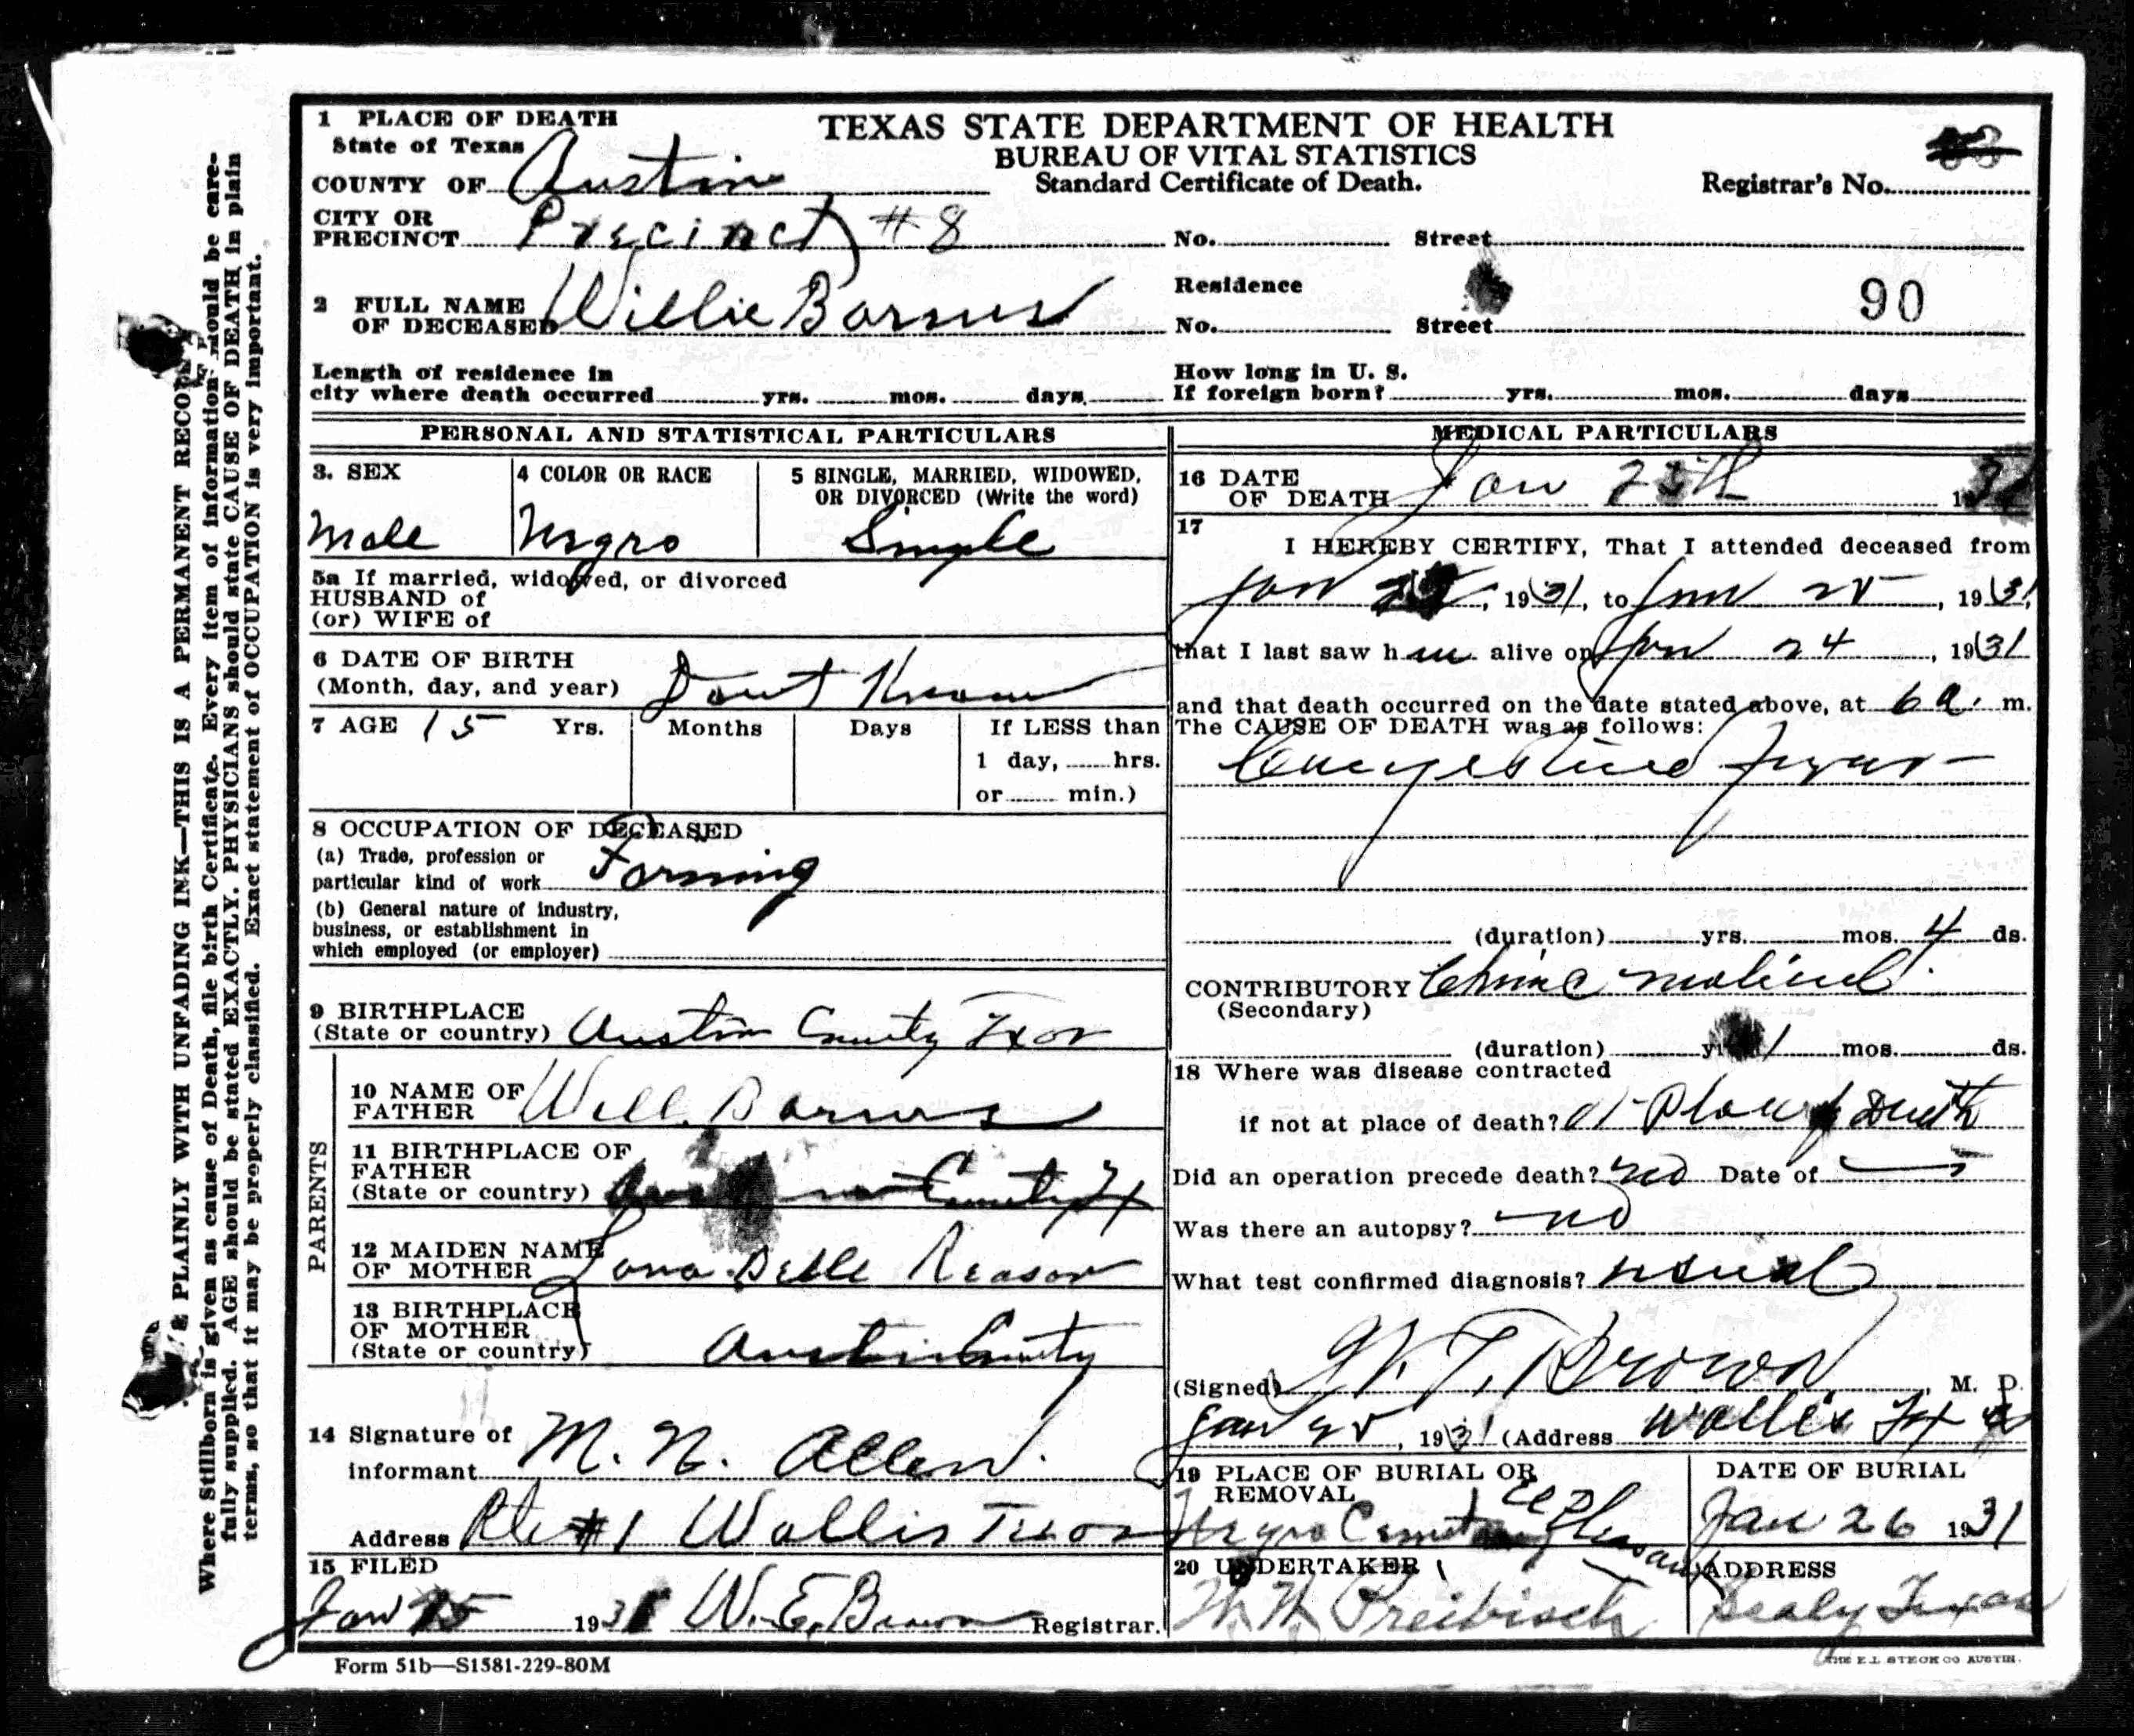 1 PLACE OF DEATH
State of Texas
COUNTY OF Austin
CITY OR
PRECINCT Precinct #8
TEXAS STATE DEPARTMENT OF HEALTH
BUREAU OF VITAL STATISTICS
Standard Certificate of Death.
Registrar's No.
No. Street
2 FULL NAME
OF DECEASED Willie Barnes
Residence
No. Street
90
Length of residence in
city where death occurred yrs. mos. days
How long in U. S.
If foreign born? yrs. mos. days
PERSONAL AND STATISTICAL PARTICULARS
3. SEX
Male
4 COLOR OR RACE
Negro
5 SINGLE, MARRIED, WIDOWED,
OR DIVORCED (Write the word)
Single
5a If married, widowed, or divorced
HUSBAND of
(or) WIFE of
6 DATE OF BIRTH
(Month, day, and year) Dont Know
7 AGE 15 Yrs. Months Days If LESS than
1 day, hrs.
or min.)
8 OCCUPATION OF DECEASED
(a) Trade, profession or
particular kind of work Farming
(b) General nature of industry,
business, or establishment in
which employed (or employer)
9 BIRTHPLACE
(State or country) Austin County Texas
PARENTS
10 NAME OF
FATHER Will Barnes
11 BIRTHPLACE OF
FATHER
(State or country) County Tx
12 MAIDEN NAME
OF MOTHER Lona Belle Reason
13 BIRTHPLACE
OF MOTHER
(State or country) Austin County
14 Signature of
informant M. N. Allen.
Address Rte #1 Wallis Texas
15 FILED
Jan 1931 W. E. Brown Registrar.
MEDICAL PARTICULARS
16 DATE
OF DEATH Jan 25th 1931
17
I HEREBY CERTIFY, That I attended deceased from
Jan , 1931, to Jan 25, 1931,
that I last saw him alive on Jan 24, 1931
and that death occurred on the date stated above, at 6 a. m.
The CAUSE OF DEATH was as follows:
Congestive
(duration) yrs. mos. 4 ds.
CONTRIBUTORY
(Secondary)
(duration) 1 mos. ds.
18 Where was disease contracted
if not at place of death? at Place of Death
Did an operation precede death? no Date of
Was there an autopsy? no
What test confirmed diagnosis? usual
(Signed) T. Brown, M. D.
Jan 25, 1931 (Address Wallis Tx
19 PLACE OF BURIAL OR
REMOVAL
Negro Cemetery Pleasant
DATE OF BURIAL
Jan 26 1931
20 UNDERTAKER
Preibisch
ADDRESS
Sealy Texas
Form 51b—S1581-229-80M
THE E.L. STECK CO AUSTIN.
PLAINLY WITH UNFADING INK—THIS IS A PERMANENT RECORD
Where Stillborn is given as cause of Death, file birth Certificate. Every item of information should be care-
fully supplied. AGE should be stated EXACTLY. PHYSICIANS should state CAUSE OF DEATH in plain
terms, so that it may be properly classified. Exact statement of OCCUPATION is very important.